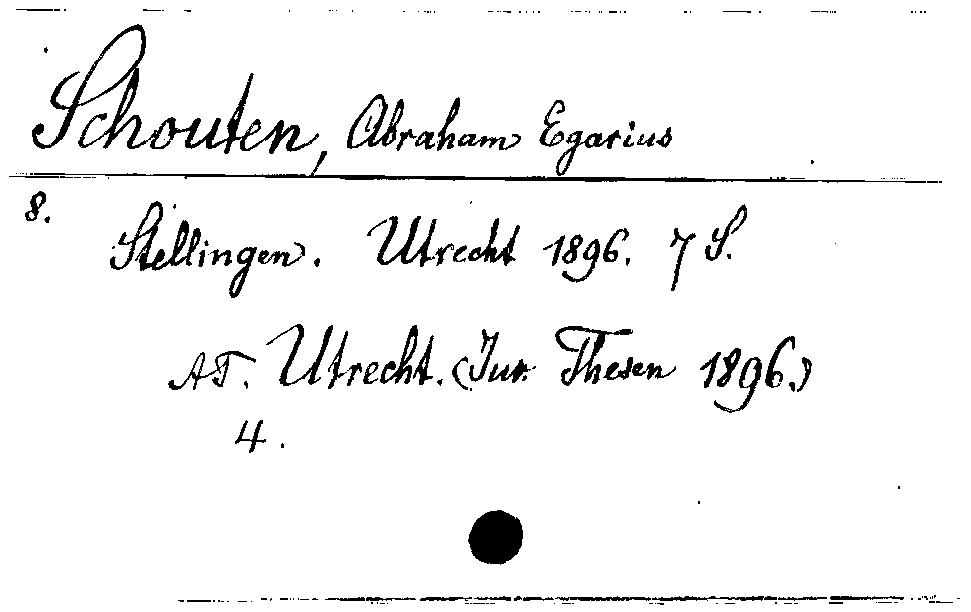 Schouten, Abraham Egarius
8.
Stellingen. Utrecht 1896. 7 S.
AT. Utrecht. (Jur. Thesen 1896.)
4.